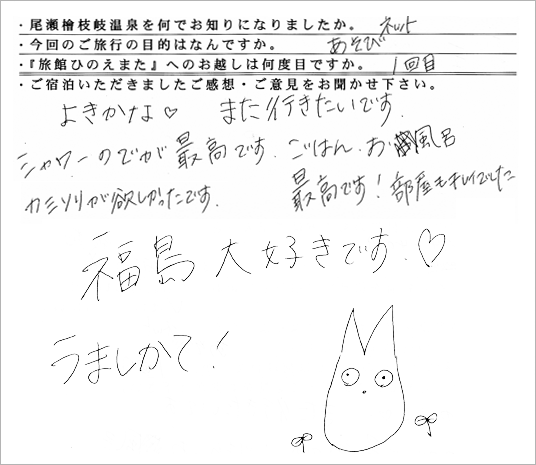 ・尾瀬檜枝岐温泉を何でお知りになりましたか。 ネット
・今回のご旅行の目的はなんですか。 あそび
・『旅館ひのえまた』へのお越しは何度目ですか。 1回目
・ご宿泊いただきましたご感想・ご意見をお聞かせ下さい。
よきかな♡ また行きたいです。
シャワーのでが最高です。ごはん、お風呂
カミソリが欲しかったです。 最高です!部屋もキレイでした
福島大好きです。♡
うましかて!